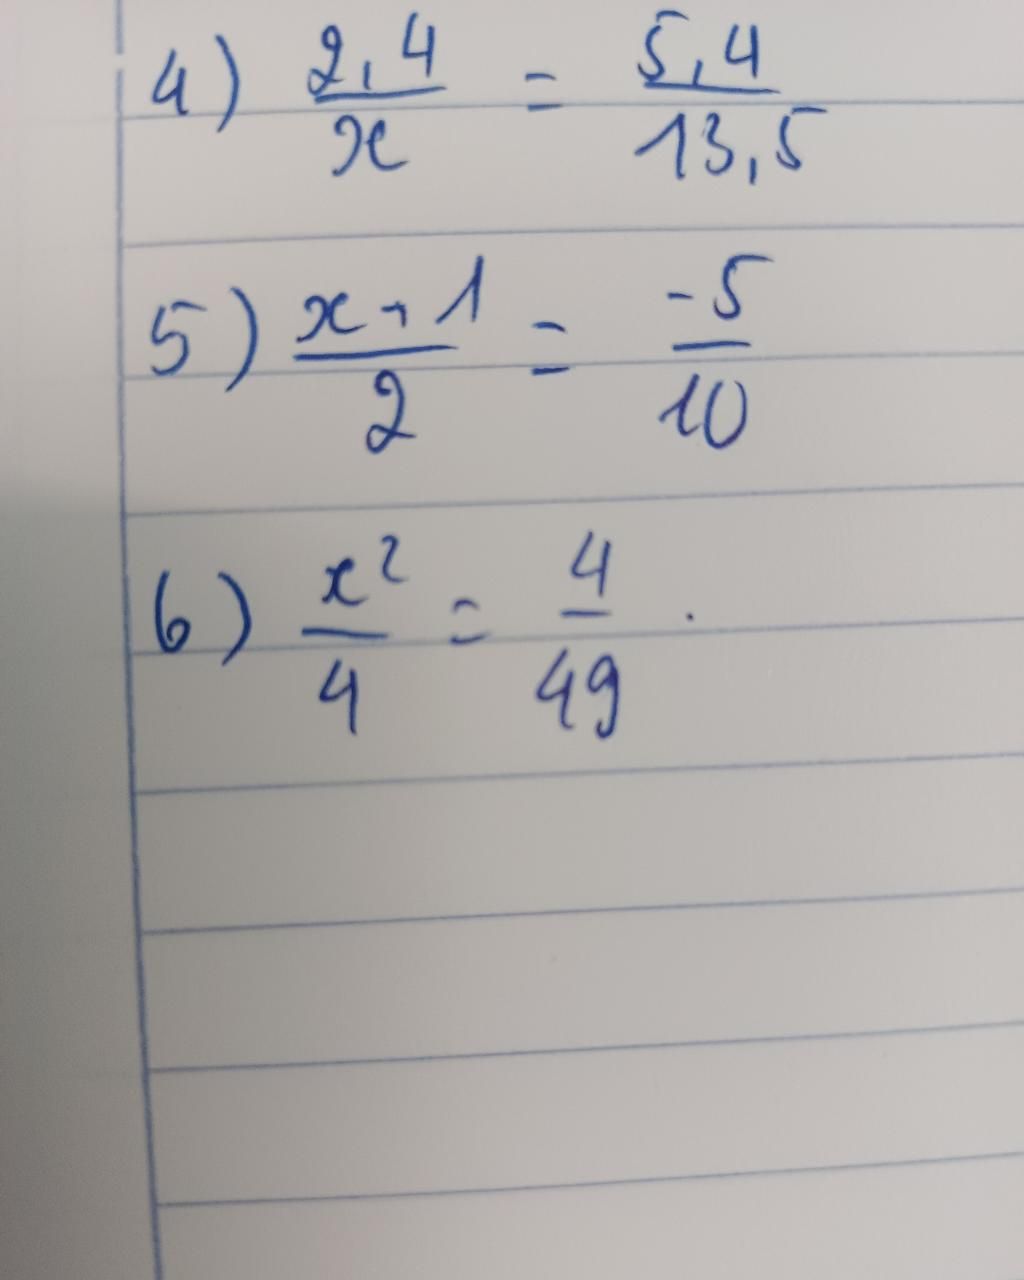 4) 2,4/x = 5,4/13,5
5) x+1/2 = -5/10
6) x²/4 = 4/49 .